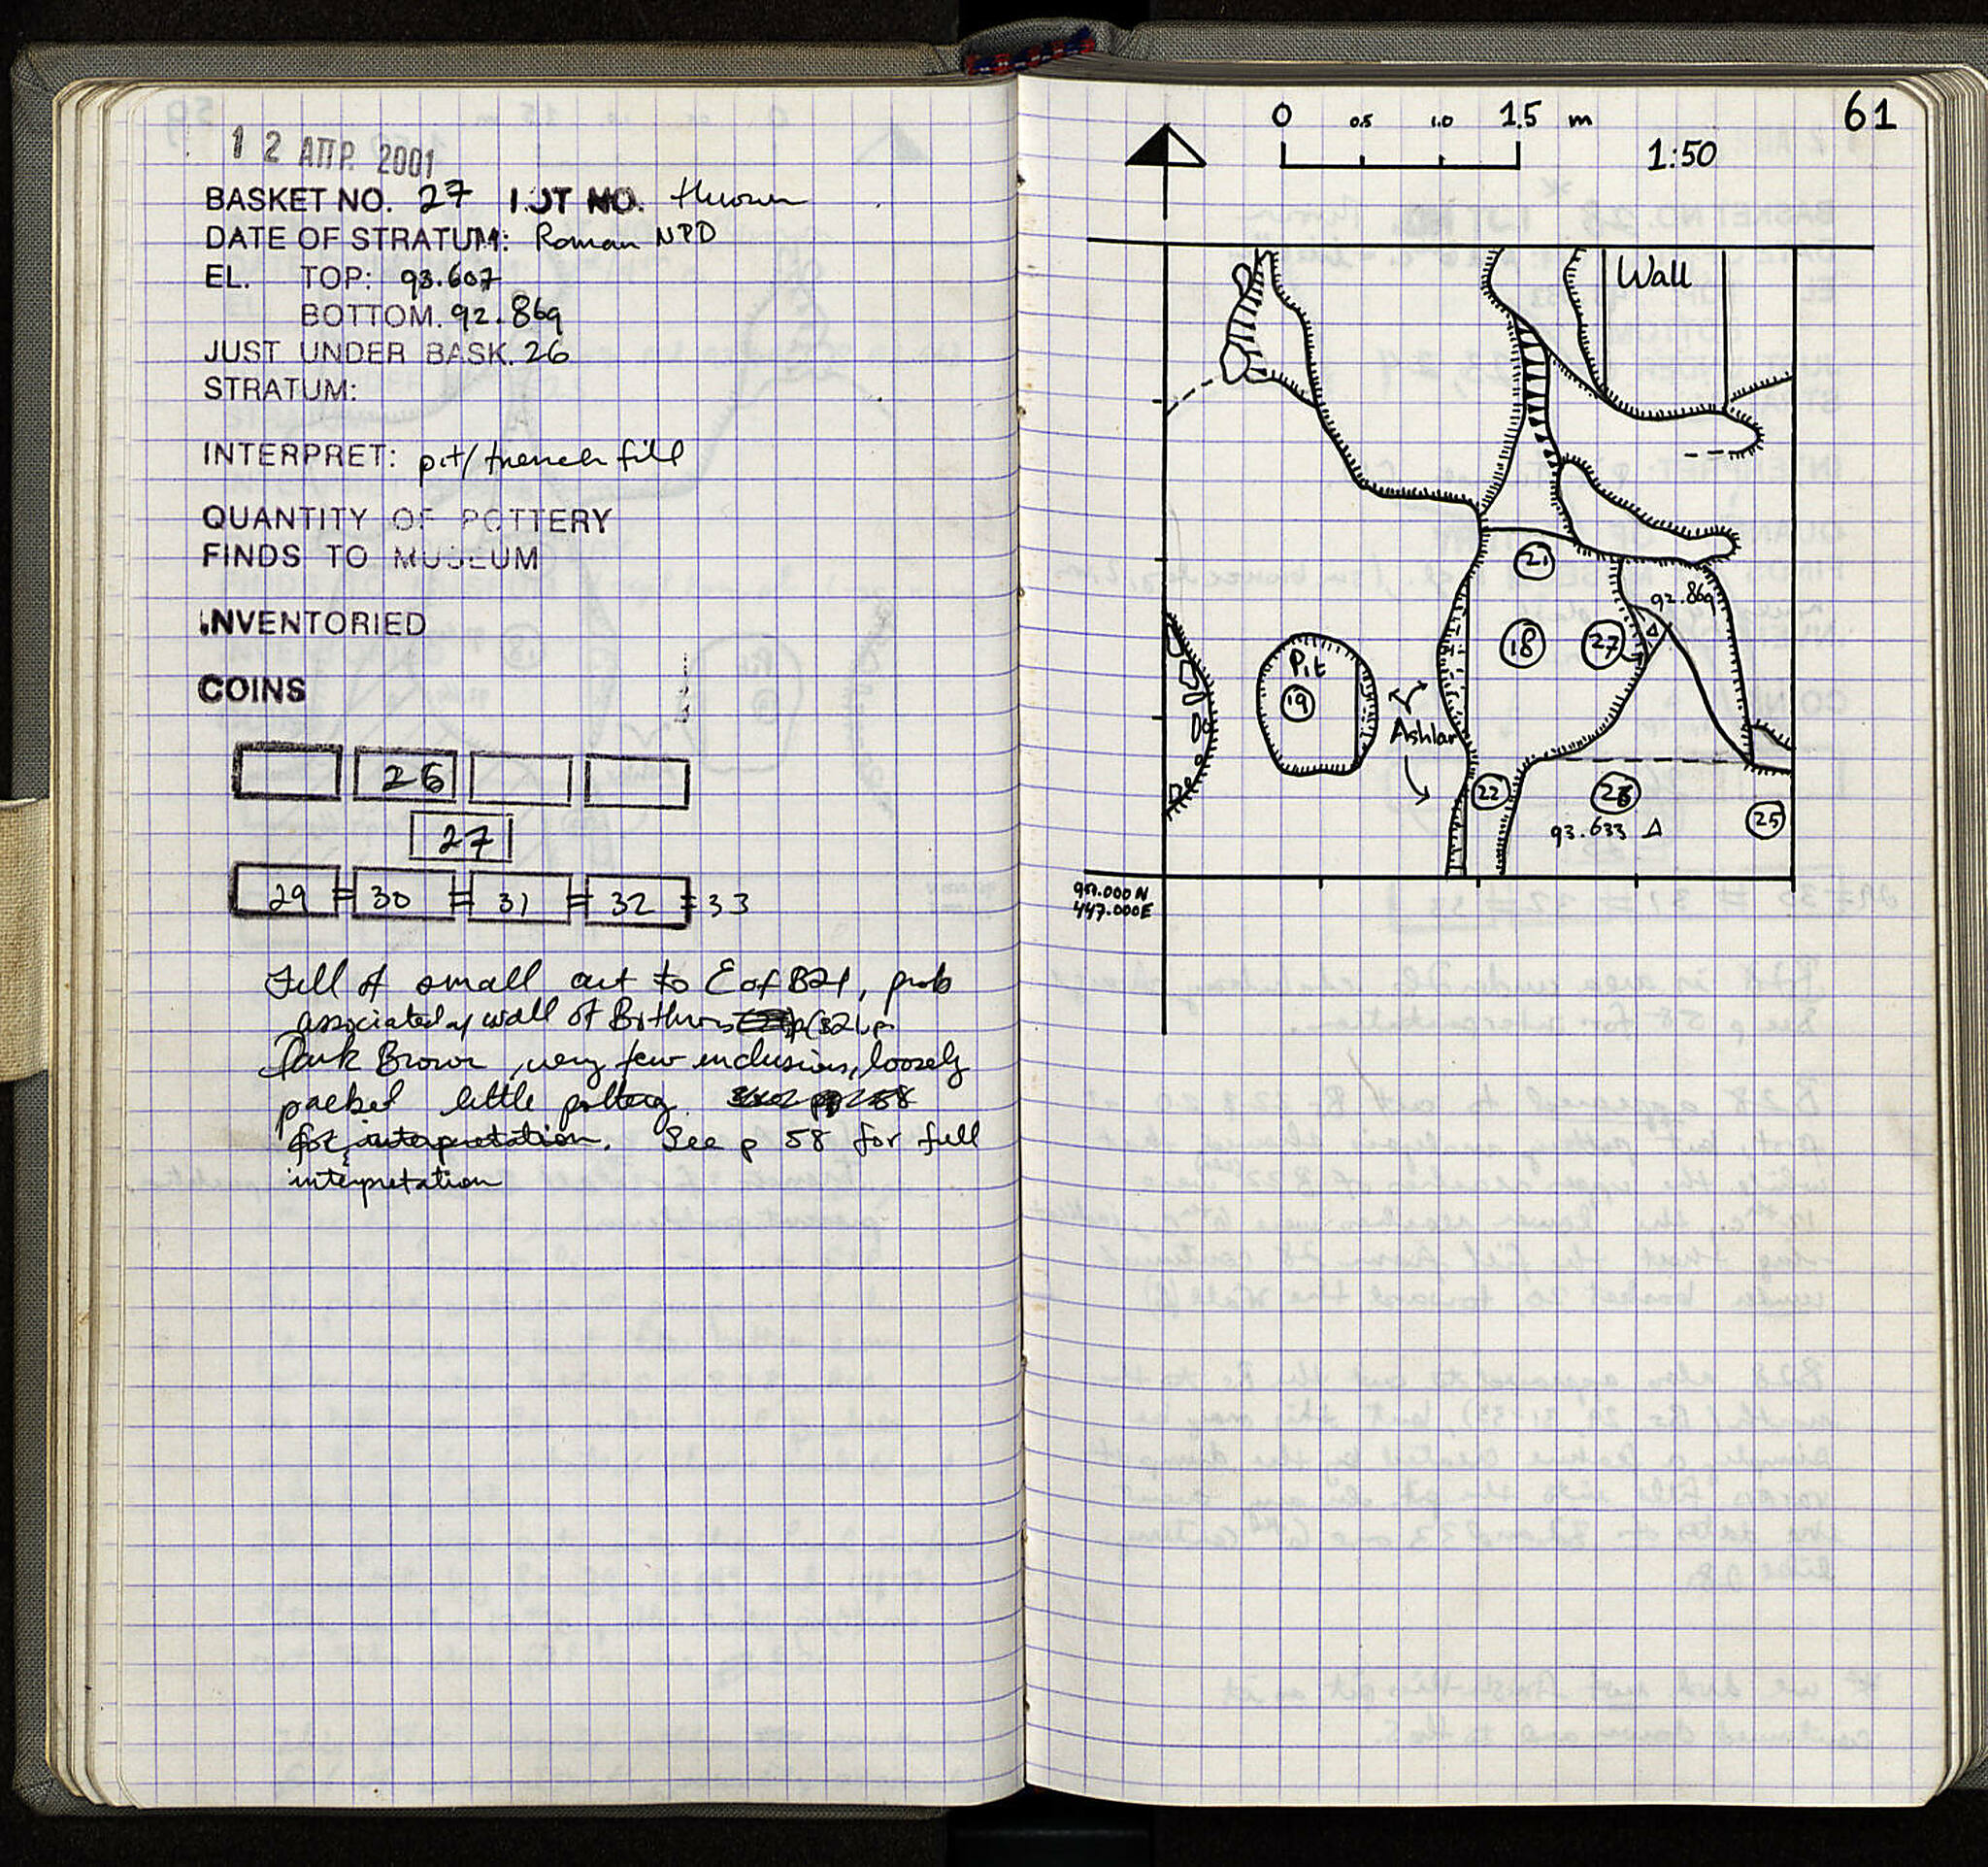 12 ΑΠΡ. 2001
BASKET NO. 27 LOT NO. thrown
DATE OF STRATUM: Roman NPD
EL. TOP: 93.607
BOTTOM. 92.869
JUST UNDER BASK. 26
STRATUM:
INTERPRET: pit/trench fill
QUANTITY OF POTTERY
FINDS TO MUSEUM
INVENTORIED
COINS
26
27
29 = 30 = 31 = 32 = 33
Fill of small cut to E of B21, prob
associated w/ wall of Bothros (B21).
Dark Brown, very few inclusions, loosely
packed little pottery. See p 58
for interpretation. See p 58 for full
interpretation
61
0 0.5 1.0 1.5 m
1:50
Wall
21
92.869
18 27
Pit
19
Ashlar
22 26
93.633
25
447.000E